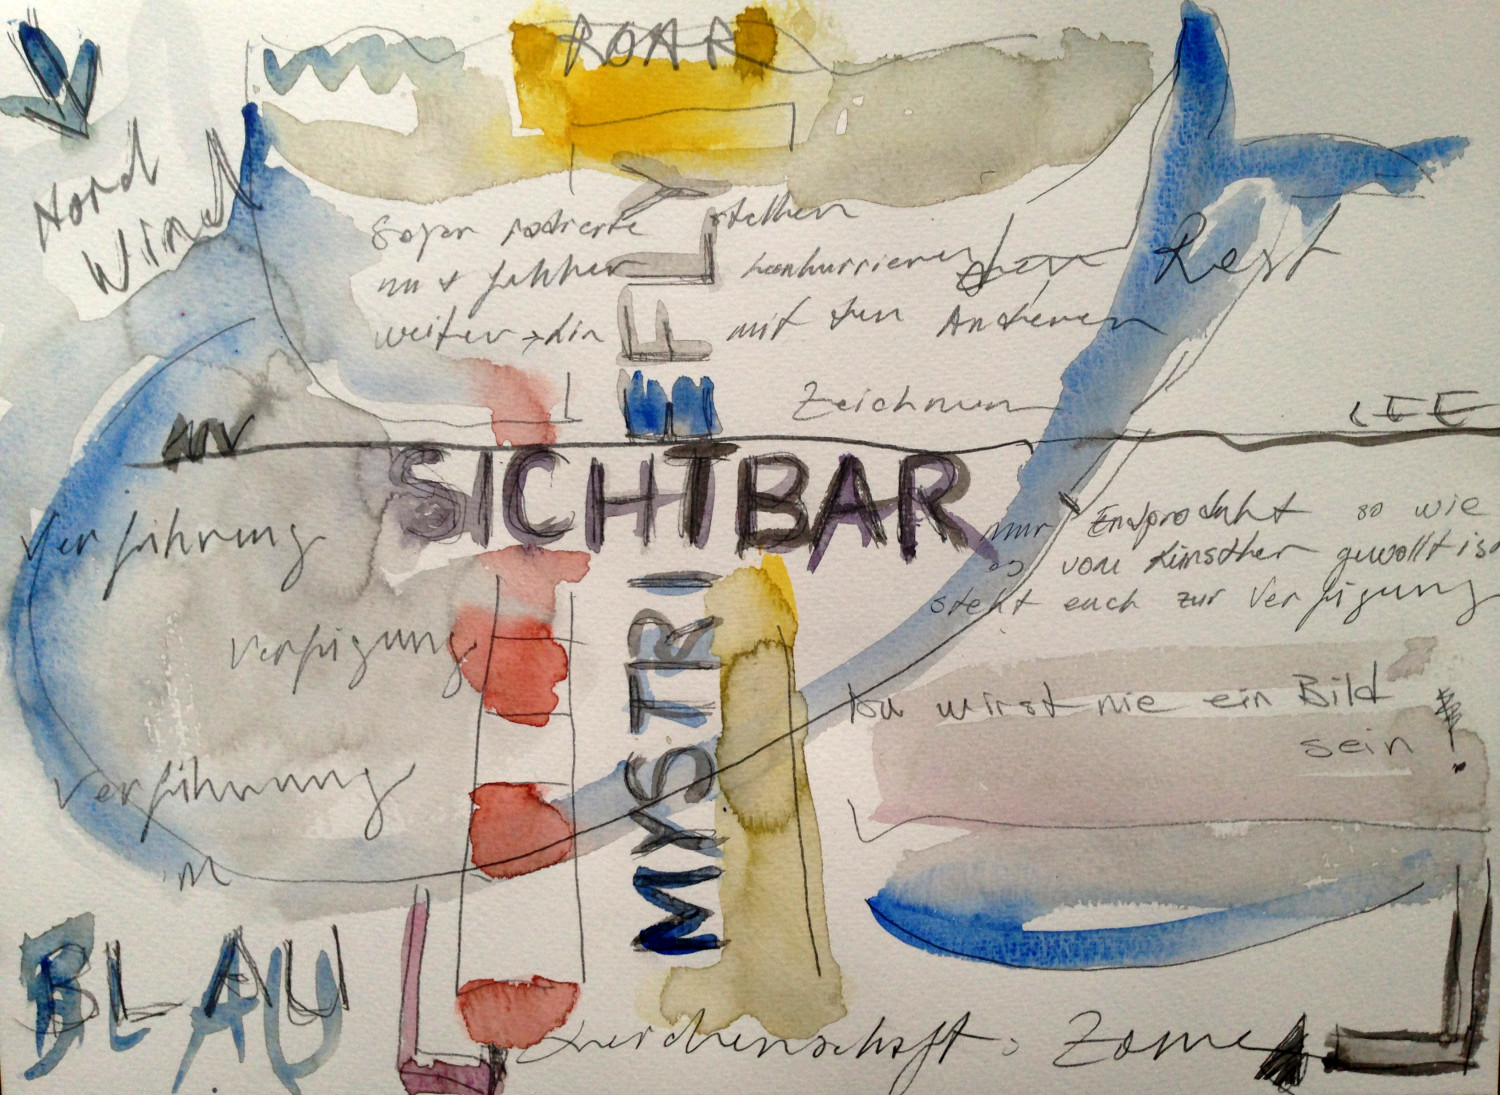 ROAR
Nord
Wind
Sogar radierte stellen
konkurrieren den Rest
weiter hin mit den Anderen
Zeichnun
LEE
SICHTBAR
MYSTRIEFLY
Verführung
Verfügung
Verführung
nur Endprodukt so wie
es vom Künstler gewollt ist
steht euch zur Verfügung
Du wirst nie ein Bild
sein !
BLAU